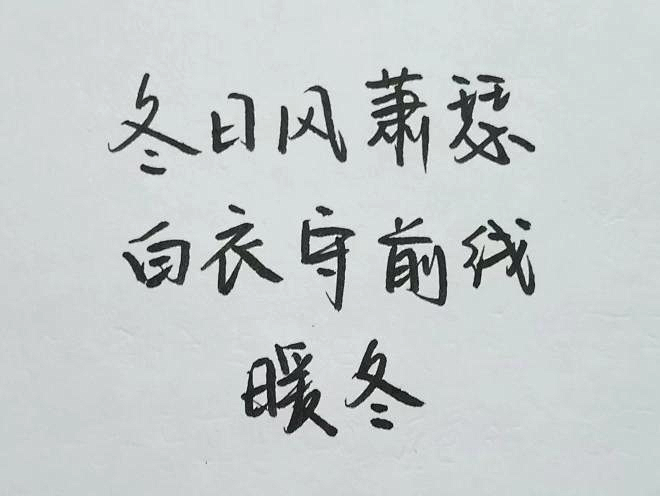 冬日风萧瑟
白衣守前线
暖冬